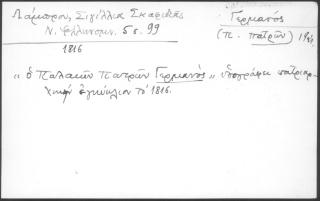 Λάμπρου, Σιγίλλια Σκαφιδιάς
Ν. Ἑλληνομν. 5 σ. 99
Γερμανός
(Π. Πατρῶν)
1816
"ὁ Παλαιῶν Πατρῶν Γερμανός" ὑπογράφει πατριαρ-
χικὴν ἐγκύκλιον τοῦ 1816.